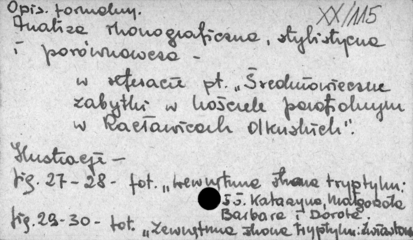 Opis. formalny.
XX/115
Analiza ikonograficzna, stylistyczna
i porównawcza -
w referacie pt. „Średniowieczne
zabytki w kościele parafialnym
w Racławicach Olkuskich".
Ilustracje -
fig. 27-28- fot. „Wewnętrzna strona tryptyku:
śś. Katarzyna, Małgorzata
Barbara i Dorota
fig. 29-30- fot. „Zewnętrzna strona tryptyku: Zwiastow